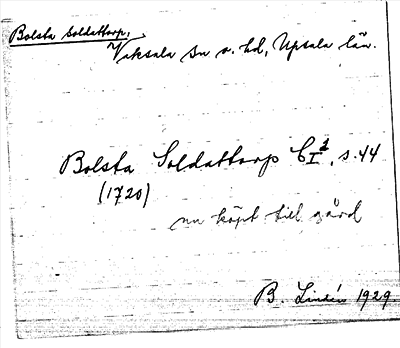 Bolsta Soldattorp,
Vaksala sn o. hd, Upsala län.
Bolsta Soldattorp C I 1, s. 44
(1720)
nu köpt till gård
B. Lindén 1929